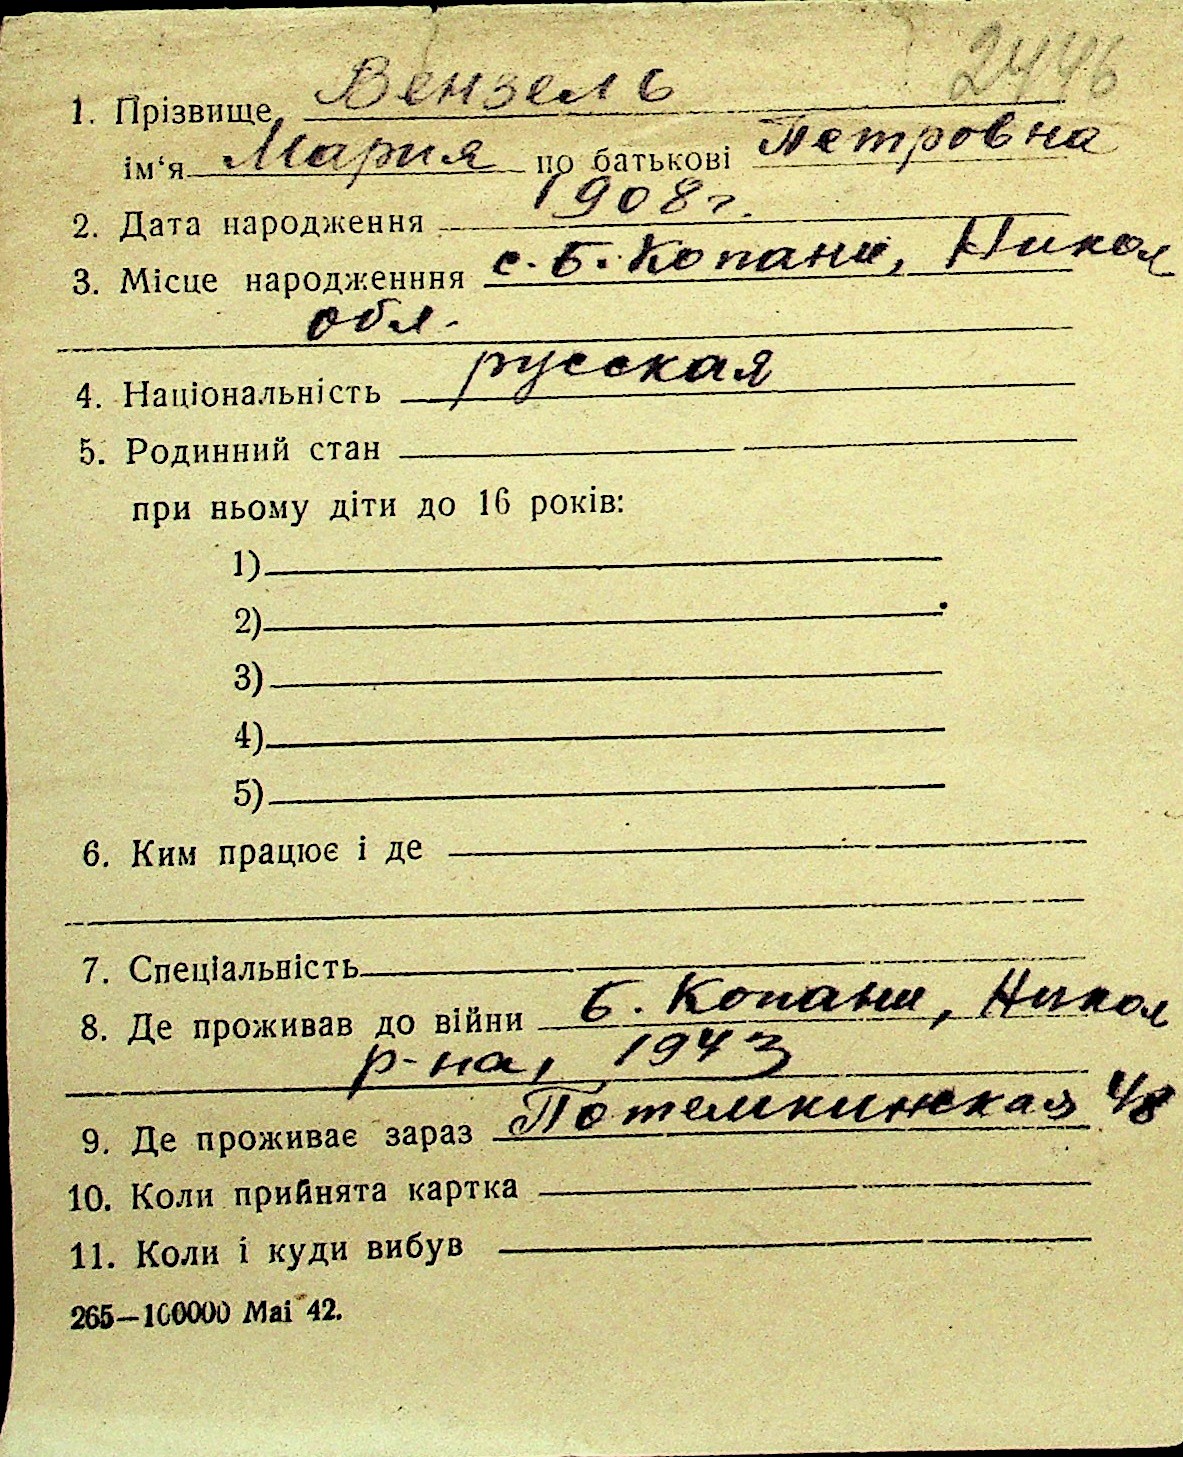 2446
1. Прізвище Вензель
ім'я Мария по батькові Петровна
2. Дата народження 1908 г.
3. Місце народженння с. Б. Копани, Никол
обл.
4. Національність русская
5. Родинний стан
при ньому діти до 16 років:
1)
2)
3)
4)
5)
6. Ким працює і де
7. Спеціальність
8. Де проживав до війни Б. Копани, Никол
р-на, 1943
9. Де проживає зараз Потемкинская 48
10. Коли прийнята картка
11. Коли і куди вибув
265—100000 Mai 42.